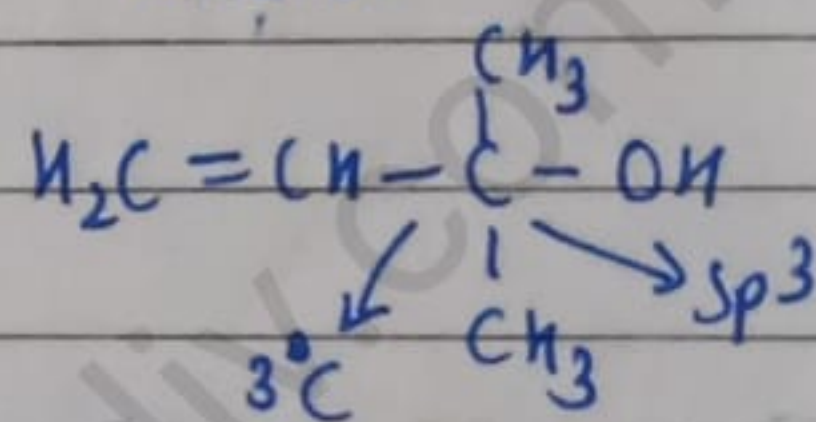 CH₃
|
H₂C = CH — C — OH
|
3°C CH₃ sp³